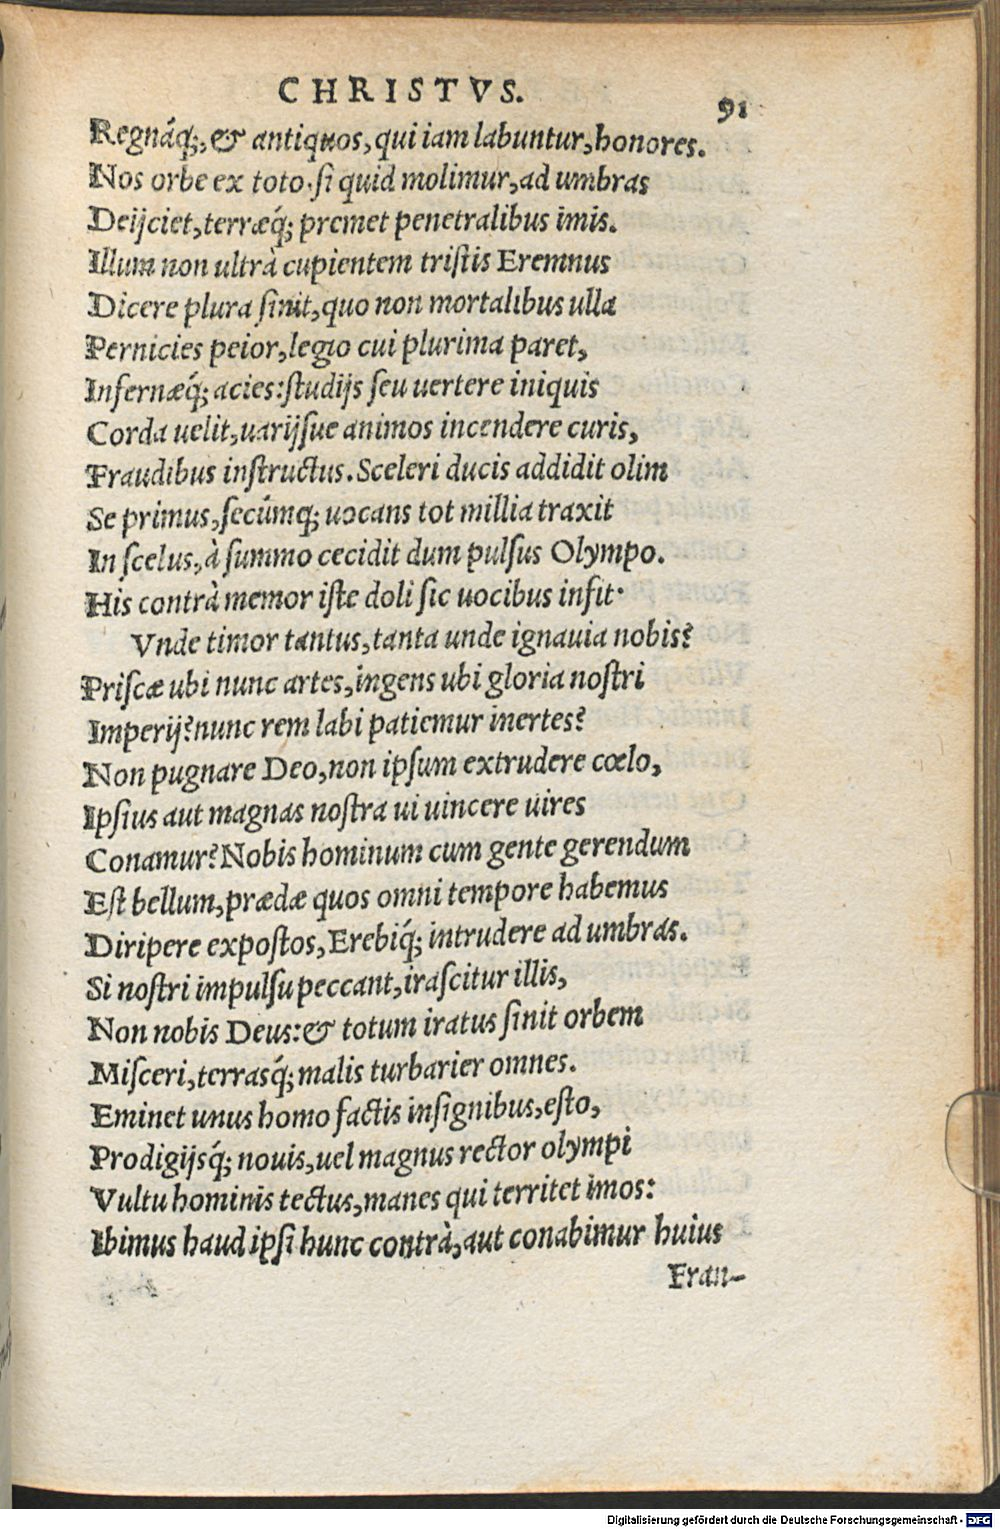 CHRISTVS.
91
Regnáq;, & antiquos, qui iam labuntur, honores.
Nos orbe ex toto. si quid molimur, ad umbras
Deijciet, terræq́; premet penetralibus imis.
Illum non ultrà cupientem tristis Eremnus
Dicere plura sinit, quo non mortalibus ulla
Pernicies peior, legio cui plurima paret,
Infernæq́; acies: studijs seu uertere iniquis
Corda uelit, uarijsue animos incendere curis,
Fraudibus instructus. Sceleri ducis addidit olim
Se primus, secúmq; uocans tot millia traxit
In scelus, à summo cecidit dum pulsus Olympo.
His contrà memor iste doli sic uocibus infit.
Vnde timor tantus, tanta unde ignauia nobis?
Priscæ ubi nunc artes, ingens ubi gloria nostri
Imperij? nunc rem labi patiemur inertes?
Non pugnare Deo, non ipsum extrudere cœlo,
Ipsius aut magnas nostra ui uincere uires
Conamur? Nobis hominum cum gente gerendum
Est bellum, prædæ quos omni tempore habemus
Diripere expostos, Erebiq́; intrudere ad umbras.
Si nostri impulsu peccant, irascitur illis,
Non nobis Deus: & totum iratus sinit orbem
Misceri, terrasq́; malis turbarier omnes.
Eminet unus homo factis insignibus, esto,
Prodigijsq́; nouis, uel magnus rector olympi
Vultu hominis tectus, manes qui territet imos:
Ibimus haud ipsi hunc contrà, aut conabimur huius
Fran-
Digitalisierung gefördert durch die Deutsche Forschungsgemeinschaft - DFG